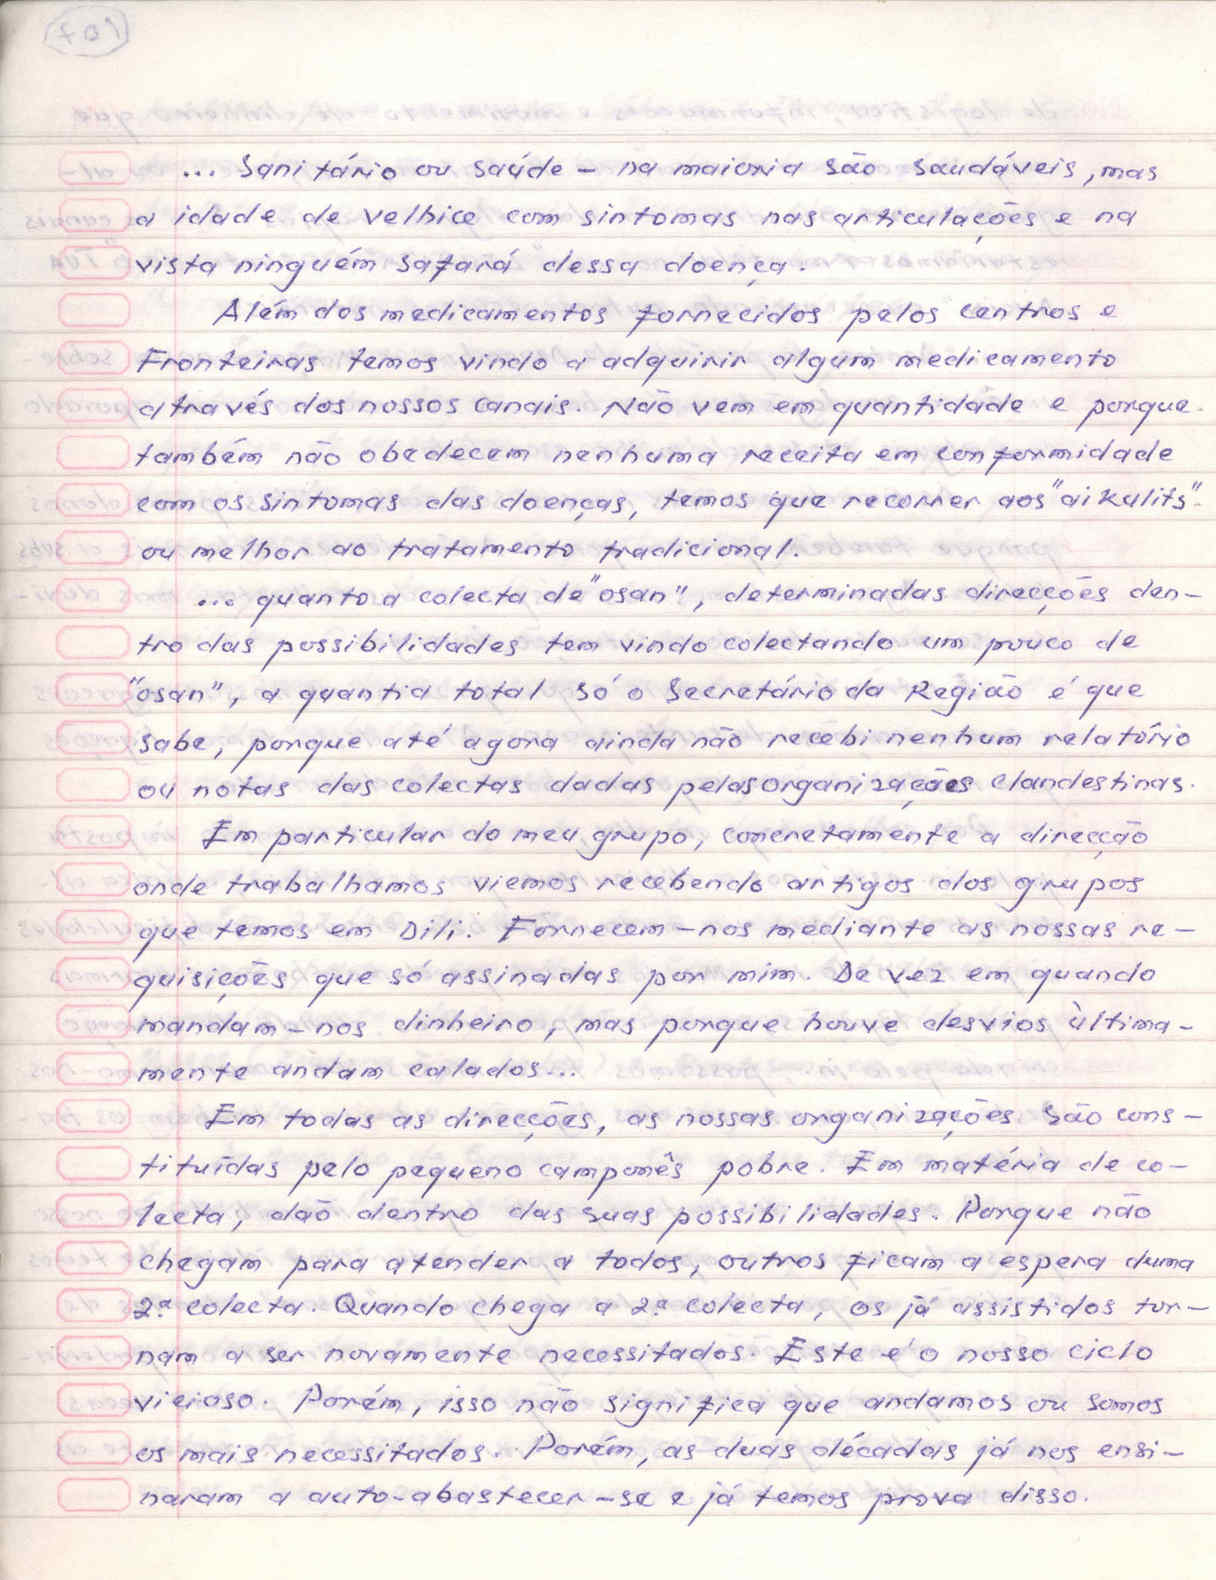 ... Sanitário ou saúde – na maioria são saudáveis, mas
a idade de velhice com sintomas nas articulações e na
vista ninguém safará dessa doença.
Além dos medicamentos fornecidos pelos centros e
Fronteiras temos vindo a adquirir algum medicamento
através dos nossos canais. Não vem em quantidade e porque
também não obedecem nenhuma receita em conformidade
com os sintomas das doenças, temos que recorrer aos "aikulits"
ou melhor ao tratamento tradicional.
... quanto a colecta de "osan", determinadas direcções den-
tro das possibilidades tem vindo colectando um pouco de
"osan", a quantia total só o Secretário da Região é que
sabe, porque até agora ainda não recebi nenhum relatório
ou notas das colectas dadas pelas organizações clandestinas.
Em particular do meu grupo, concretamente a direcção
onde trabalhamos viemos recebendo artigos dos grupos
que temos em Dili. Fornecem-nos mediante as nossas re-
quisições que só assinadas por mim. De vez em quando
mandam-nos dinheiro, mas porque houve desvios ùltima-
mente andam calados...
Em todas as direcções, as nossas organizações são cons-
tituídas pelo pequeno camponês pobre. Em matéria de co-
lecta, dão dentro das suas possibilidades. Porque não
chegam para atender a todos, outros ficam a espera duma
2ª colecta. Quando chega a 2ª colecta, os já assistidos tor-
nam a ser novamente necessitados. Este é o nosso ciclo
vicioso. Porém, isso não significa que andamos ou somos
os mais necessitados. Porém, as duas décadas já nos ensi-
naram a auto-abastecer-se e já temos prova disso.